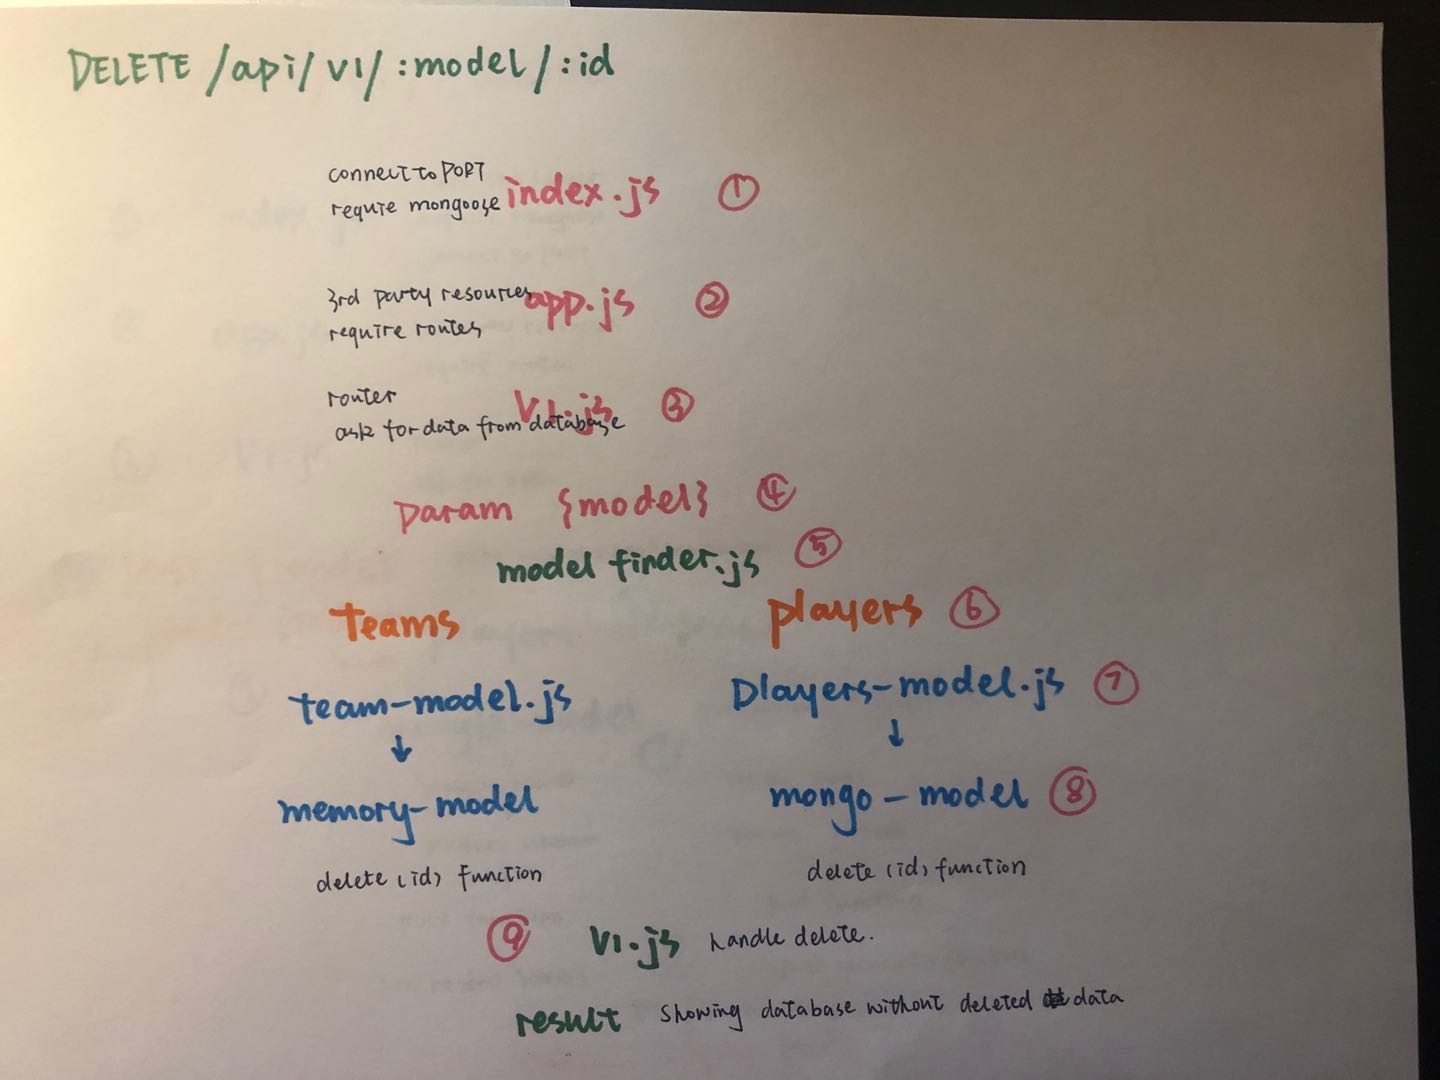 DELETE /api/v1/:model/:id
connect to PORT
requie mongoose index.js ①
3rd party resources app.js ②
require routes
router v1.js ③
ask for data from database
param {model} ④
model finder.js ⑤
teams players ⑥
team-model.js players-model.js ⑦
↓ ↓
memory-model mongo-model ⑧
delete (id) function delete (id) function
⑨ v1.js handle delete.
result showing database without deleted data